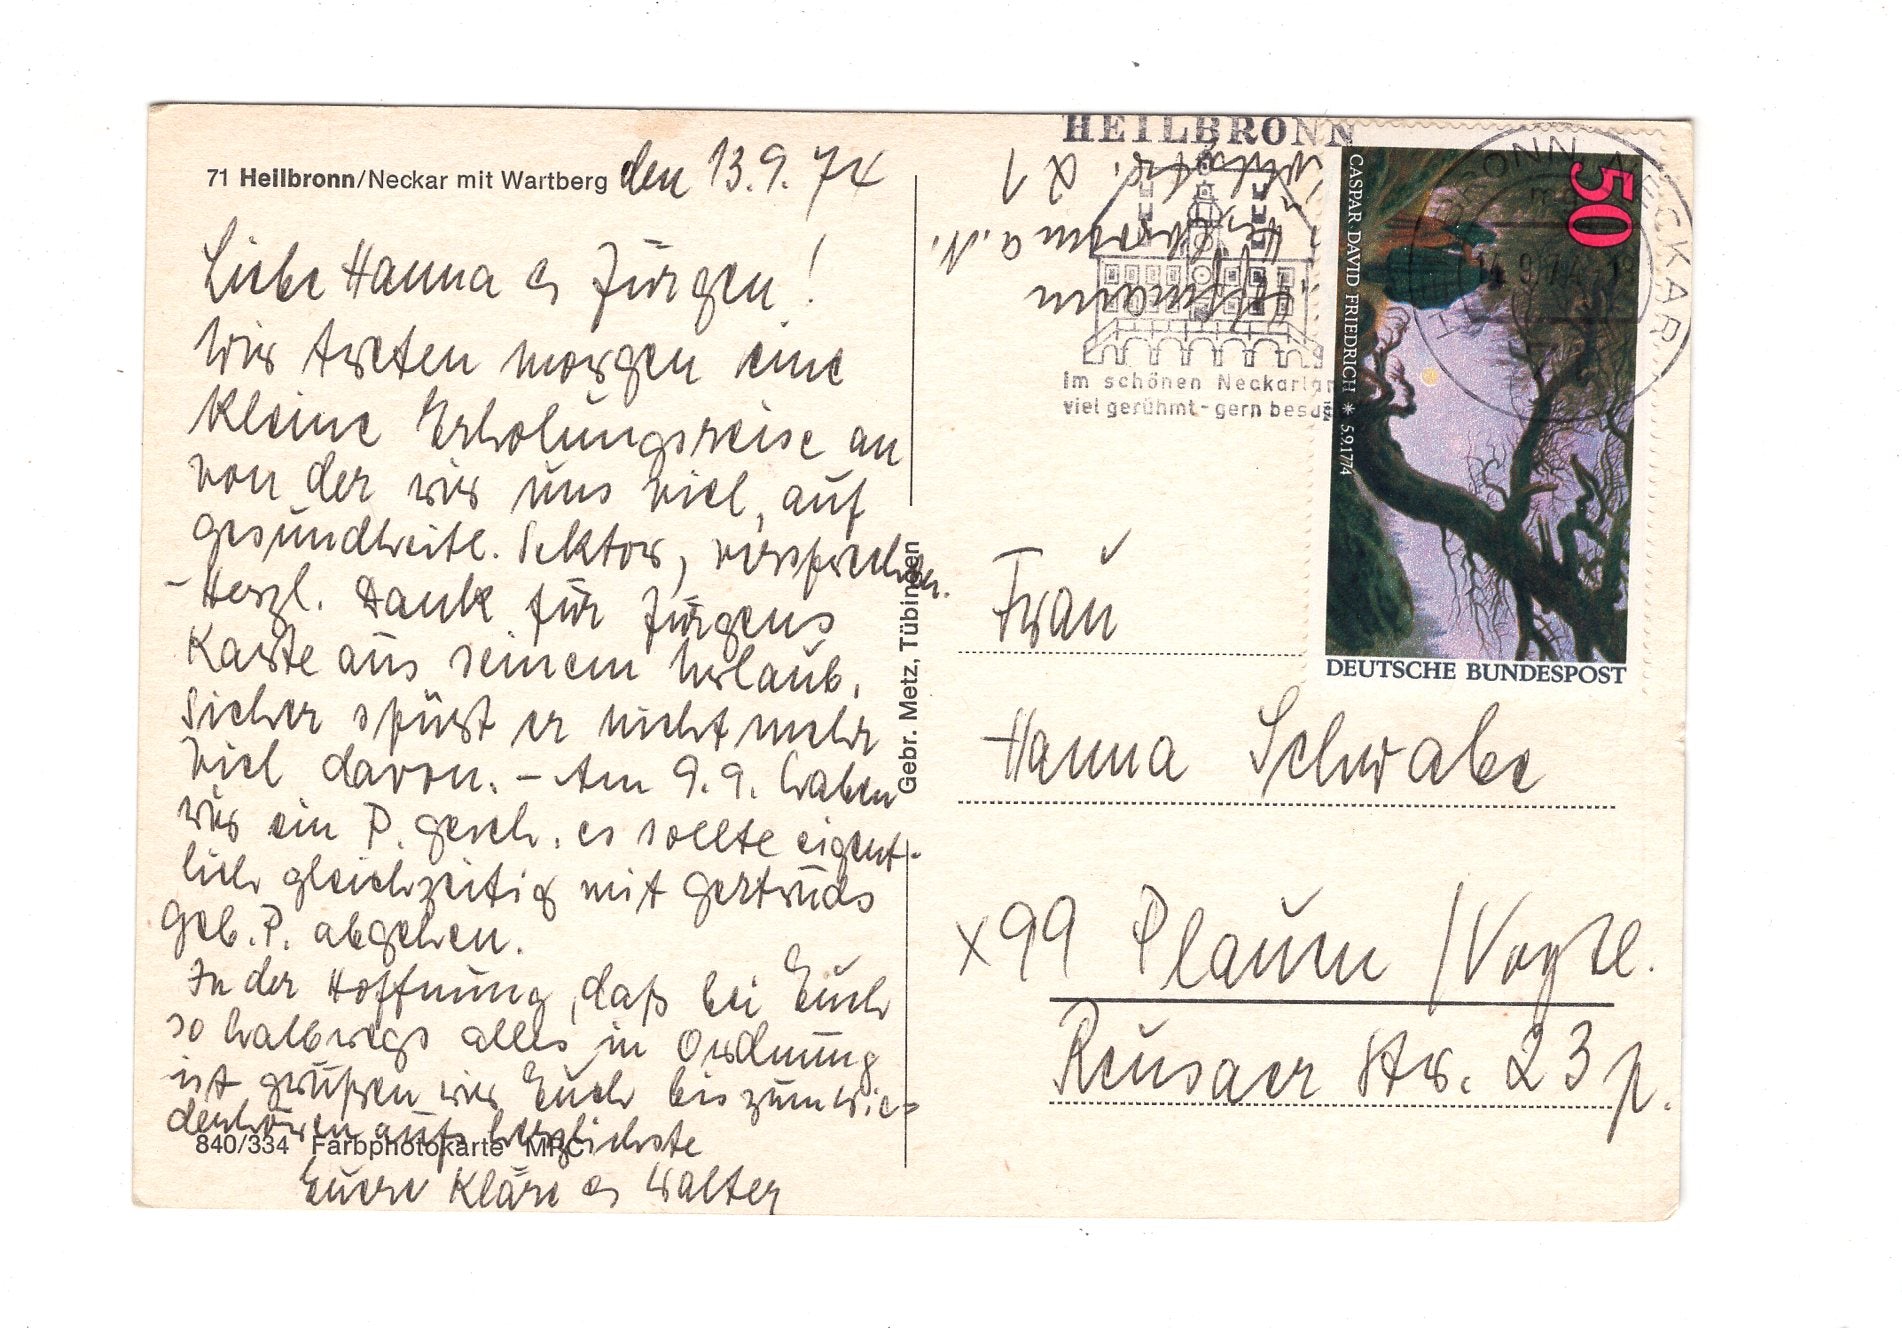 71 Heilbronn/Neckar mit Wartberg den 13.9.74
Liebe Hanna & Jürgen!
Wir treten morgen eine
kleine Erholungsreise an
von der wir uns viel, auf
gesundheitl. Sektor, versprechen.
- Herzl. Dank für Jürgens
Karte aus seinem Urlaub.
Sicher spürt er nicht mehr
viel davon. - Am 9.9. haben
wir ein P. gesch. es sollte eigent-
lich gleichzeitig mit Gertruds
Geb. P. abgehen.
In der Hoffnung, daß bei Euch
so halbwegs alles in Ordnung
ist grüßen wir Euch bis zum Wie=
derhören aufs herzlichste
840/334 Farbphotokarte MPC
Eure Kläre & Walter
Gebr. Metz, Tübingen
HEILBRONN
Im schönen Neckarlan
viel gerühmt - gern besu
Heilbronn a.N.
HEILBRONN, NECKAR
14.9.74-18
50
CASPAR DAVID FRIEDRICH * 5.9.1774
1974
DEUTSCHE BUNDESPOST
Frau
Hanna Schwabe
X99 Plauen /Vogtl.
Reusaer Str. 23 p.